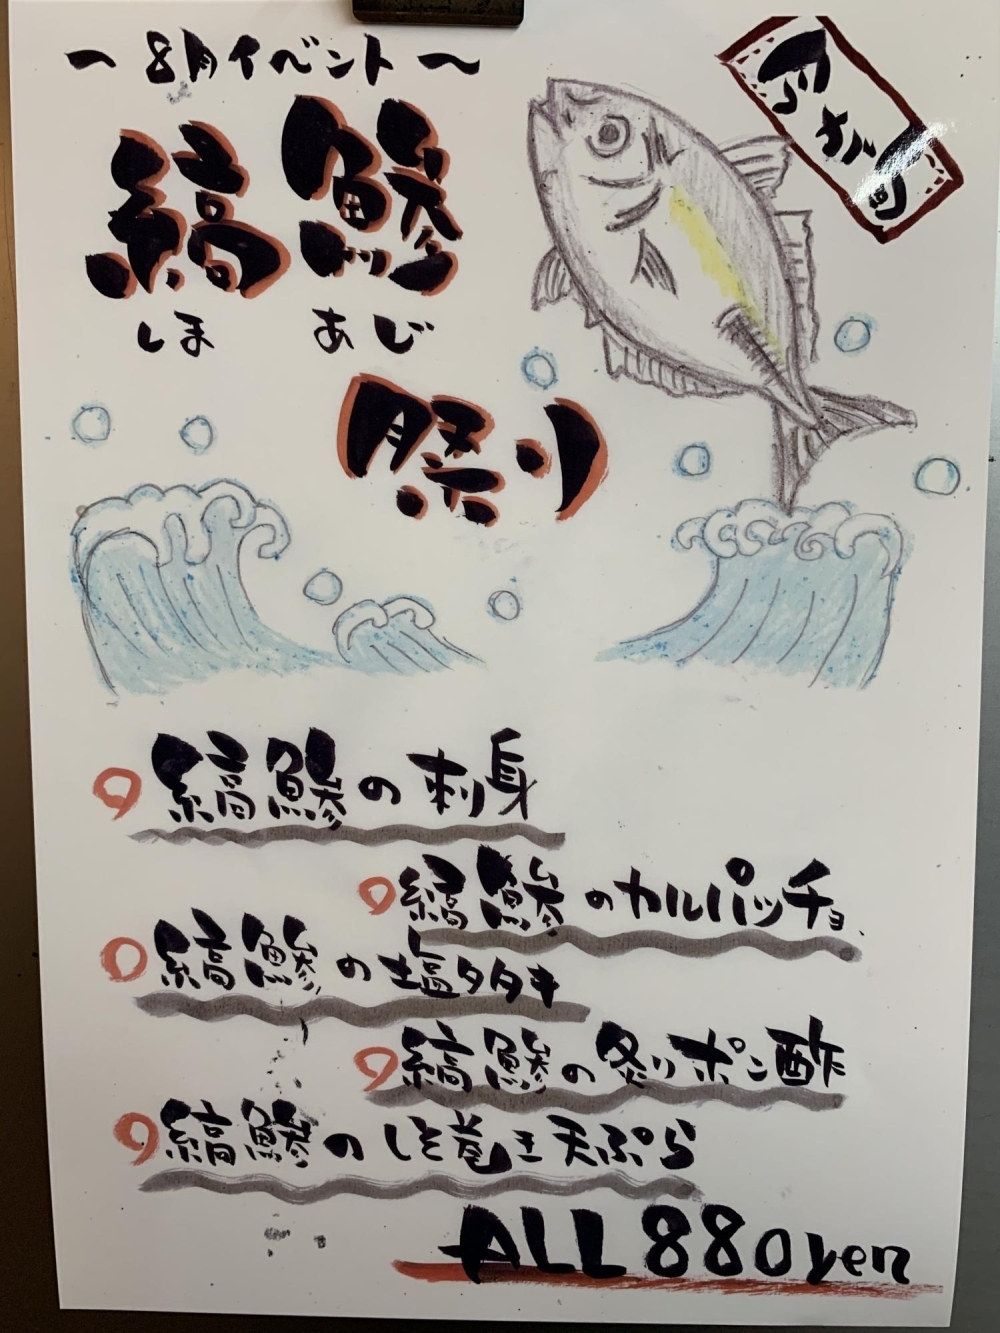 〜8月イベント〜
縞鯵
しま あじ
祭り
縞鯵の刺身
縞鯵のカルパッチョ
縞鯵の塩タタキ
縞鯵の炙りポン酢
縞鯵のしそ巻き天ぷら
ALL 880yen